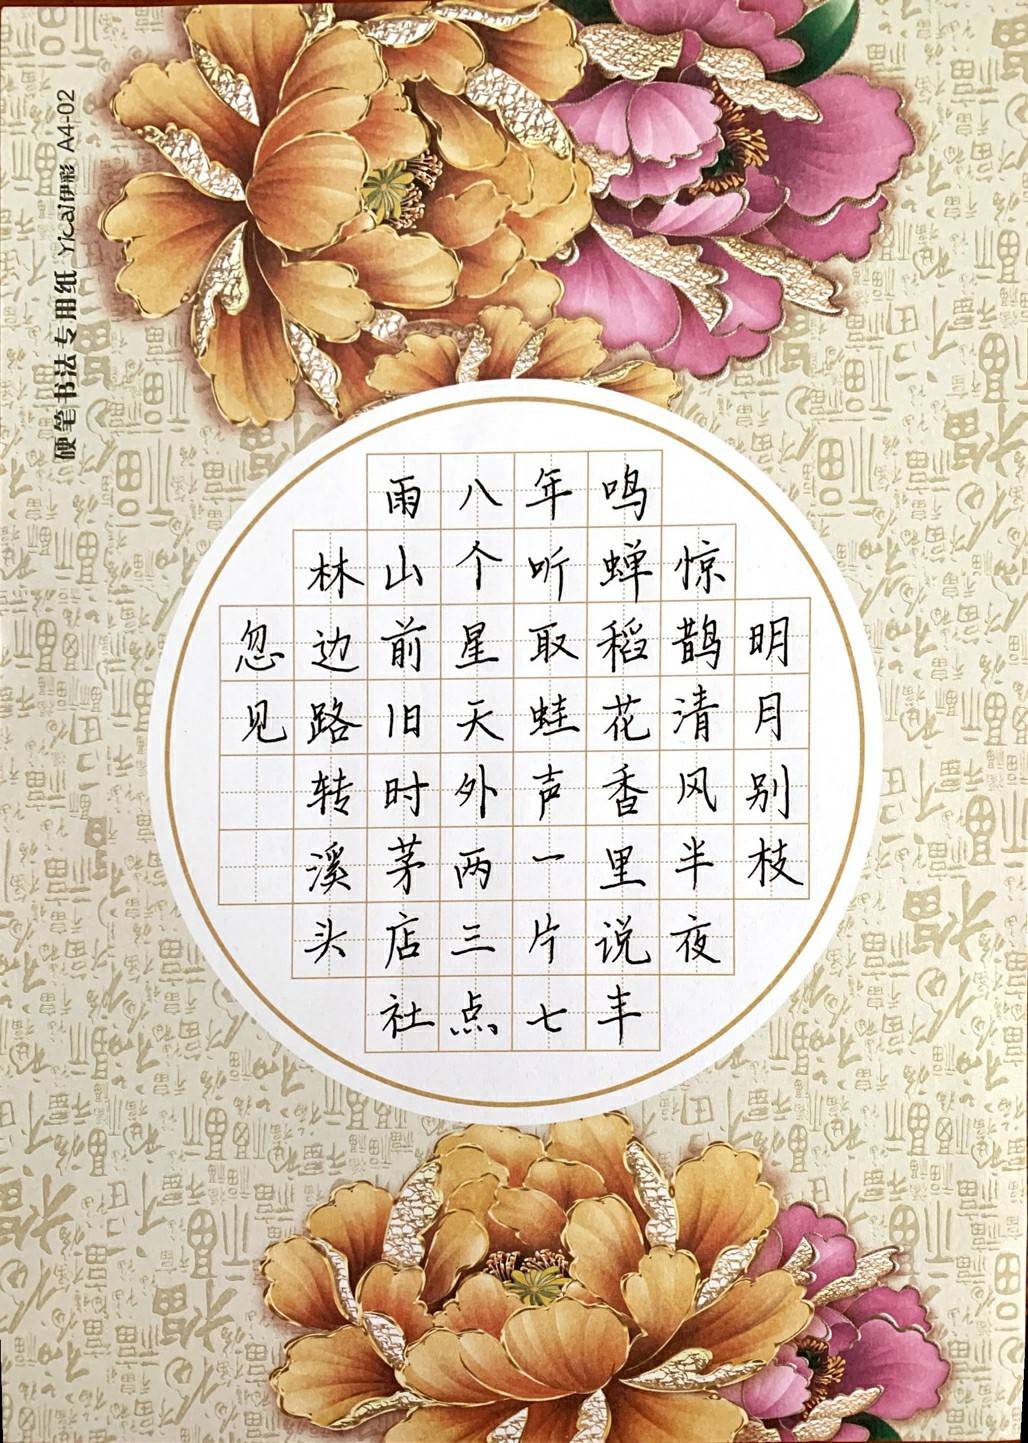 明月别枝
惊鹊清风半夜
鸣蝉稻花香里说丰
年听取蛙声一片七
八个星天外两三点
雨山前旧时茅店社
林边路转溪头
忽见
硬笔书法专用纸 Yicai伊彩 A4-02